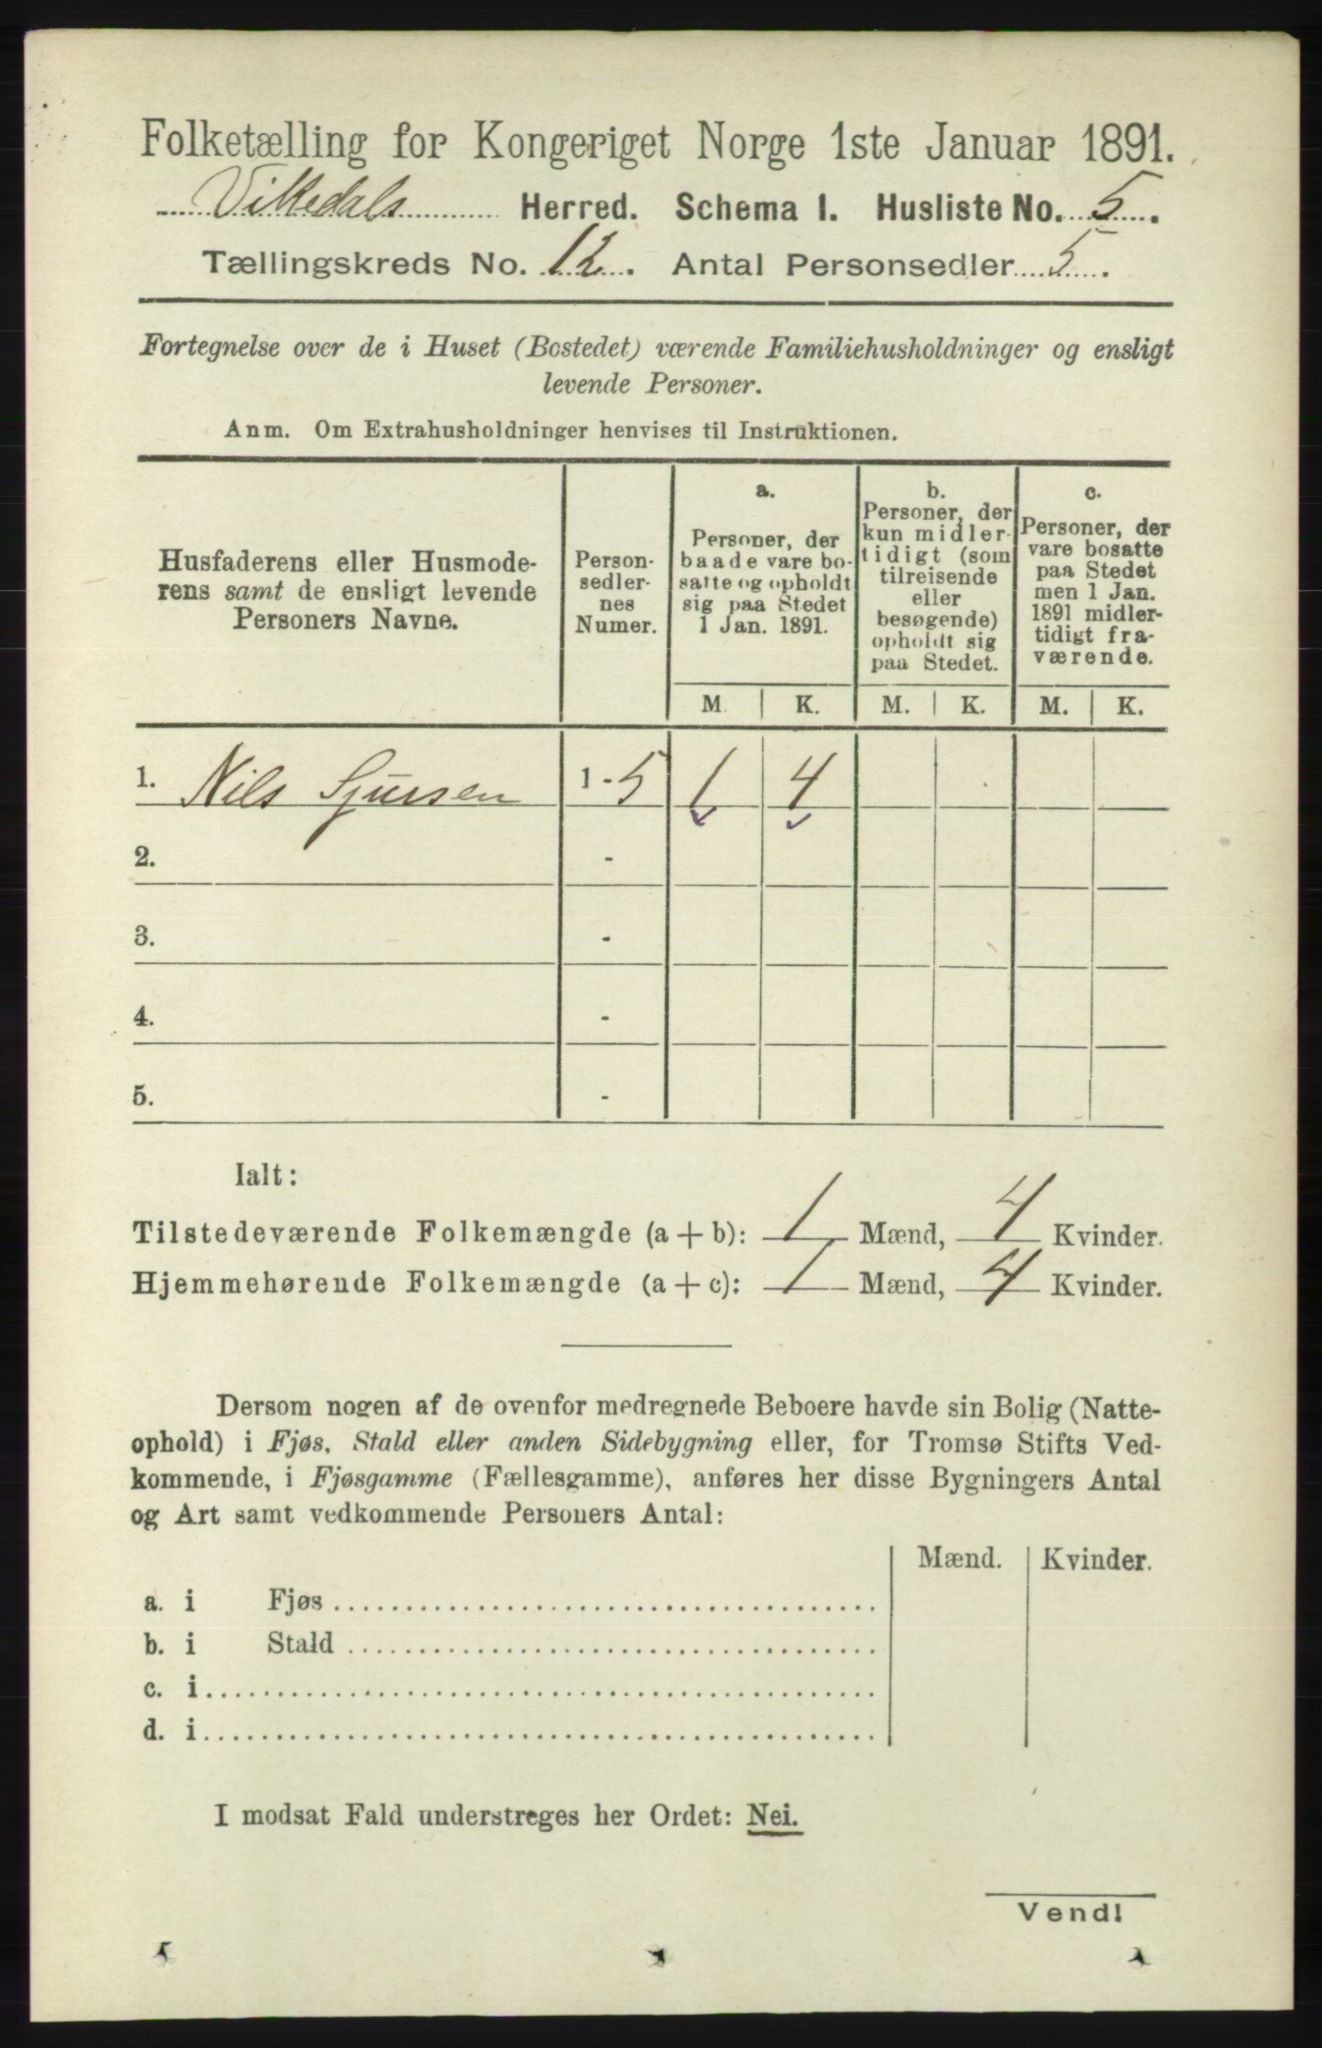 Folketælling for Kongeriget Norge 1ste Januar 1891.
Vikedals Herred. Schema I. Husliste No. 5.
Tællingskreds No. 12. Antal Personsedler 5.
Fortegnelse over de i Huset (Bostedet) værende Familiehusholdninger og ensligt
levende Personer.
Anm. Om Extrahusholdninger henvises til Instruktionen.
Husfaderens eller Husmode-
rens samt de ensligt levende
Personers Navne.
Person-
sedler-
nes
Numer.
a.
Personer, der
baade vare bo-
satte og opholdt
sig paa Stedet
1 Jan. 1891.
b.
Personer, der
kun midler-
tidigt (som
tilreisende
eller
besøgende)
opholdt sig
paa Stedet.
c.
Personer, der
vare bosatte
paa Stedet
men 1 Jan.
1891 midler-
tidigt fra-
værende.
M K. M. K. M. K.
1. Nils Sjursen 1-5 1 4
2. -
3. -
4. -
5. -
Ialt:
Tilstedeværende Folkemængde (a + b): 1 Mænd, 4 Kvinder.
Hjemmehørende Folkemængde (a + c): 1 Mænd, 4 Kvinder.
Dersom nogen af de ovenfor medregnede Beboere havde sin Bolig (Natte-
ophold) i Fjøs, Stald eller anden Sidebygning eller, for Tromsø Stifts Ved-
kommende, i Fjøsgamme (Fællesgamme), anføres her disse Bygningers Antal
og Art samt vedkommende Personers Antal:
Mænd. Kvinder.
a. i Fjøs
b. i Stald
c. i
d. i
I modsat Fald understreges her Ordet: Nei.
Vend!